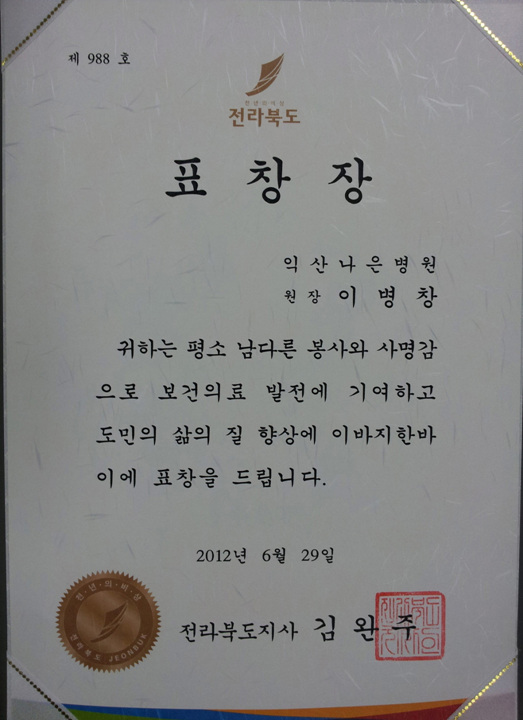 제 988 호
천년의비상
전라북도
표창장
익산나은병원
원장 이병창
귀하는 평소 남다른 봉사와 사명감
으로 보건의료 발전에 기여하고
도민의 삶의 질 향상에 이바지한바
이에 표창을 드립니다.
2012년 6월 29일
천·년·의·비·상
전라북도 JEONBUK
전라북도지사 김완주